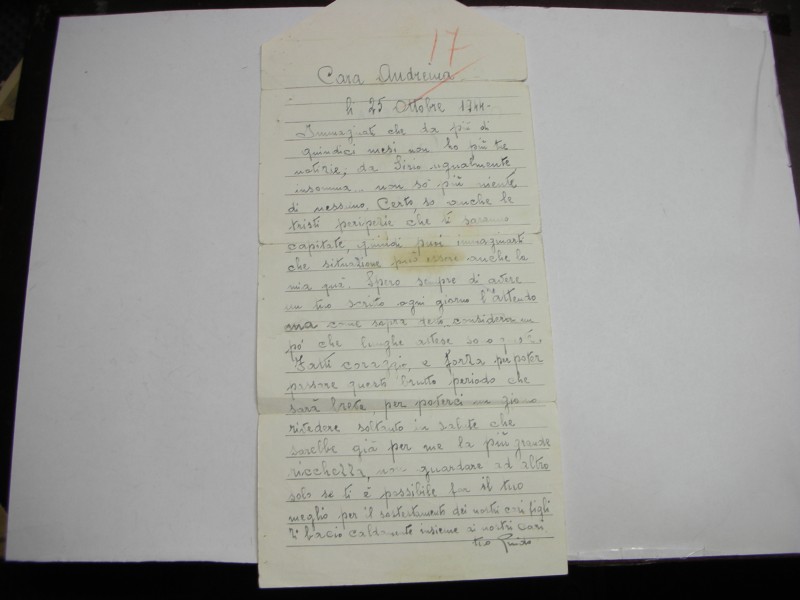 17
Cara Andreina
li 25 Ottobre 1944.
Immaginati che da più di
quindici mesi non ho più tue
notizie, da Siro ugualmente,
insomma non so più niente
di nessuno. Certo, so anche le
tristi peripezie che ti saranno
capitate, quindi puoi immaginarti
che situazione può essere anche la
mia qui. Spero sempre di avere
un tuo scritto ogni giorno l'attendo
ma come sopra devi considerare un
pò che lunghe attese sono
Fatti coraggio, e forza per poter
passare questo brutto periodo che
sarà breve, per poterci un giorno
rivedere soltanto in salute che
sarebbe già per me la più grande
ricchezza, non guardare ad altro
solo se ti è possibile fai il tuo
meglio per il sostentamento dei nostri cari figli
Ti bacio caldamente insieme ai nostri cari
tuo Guido